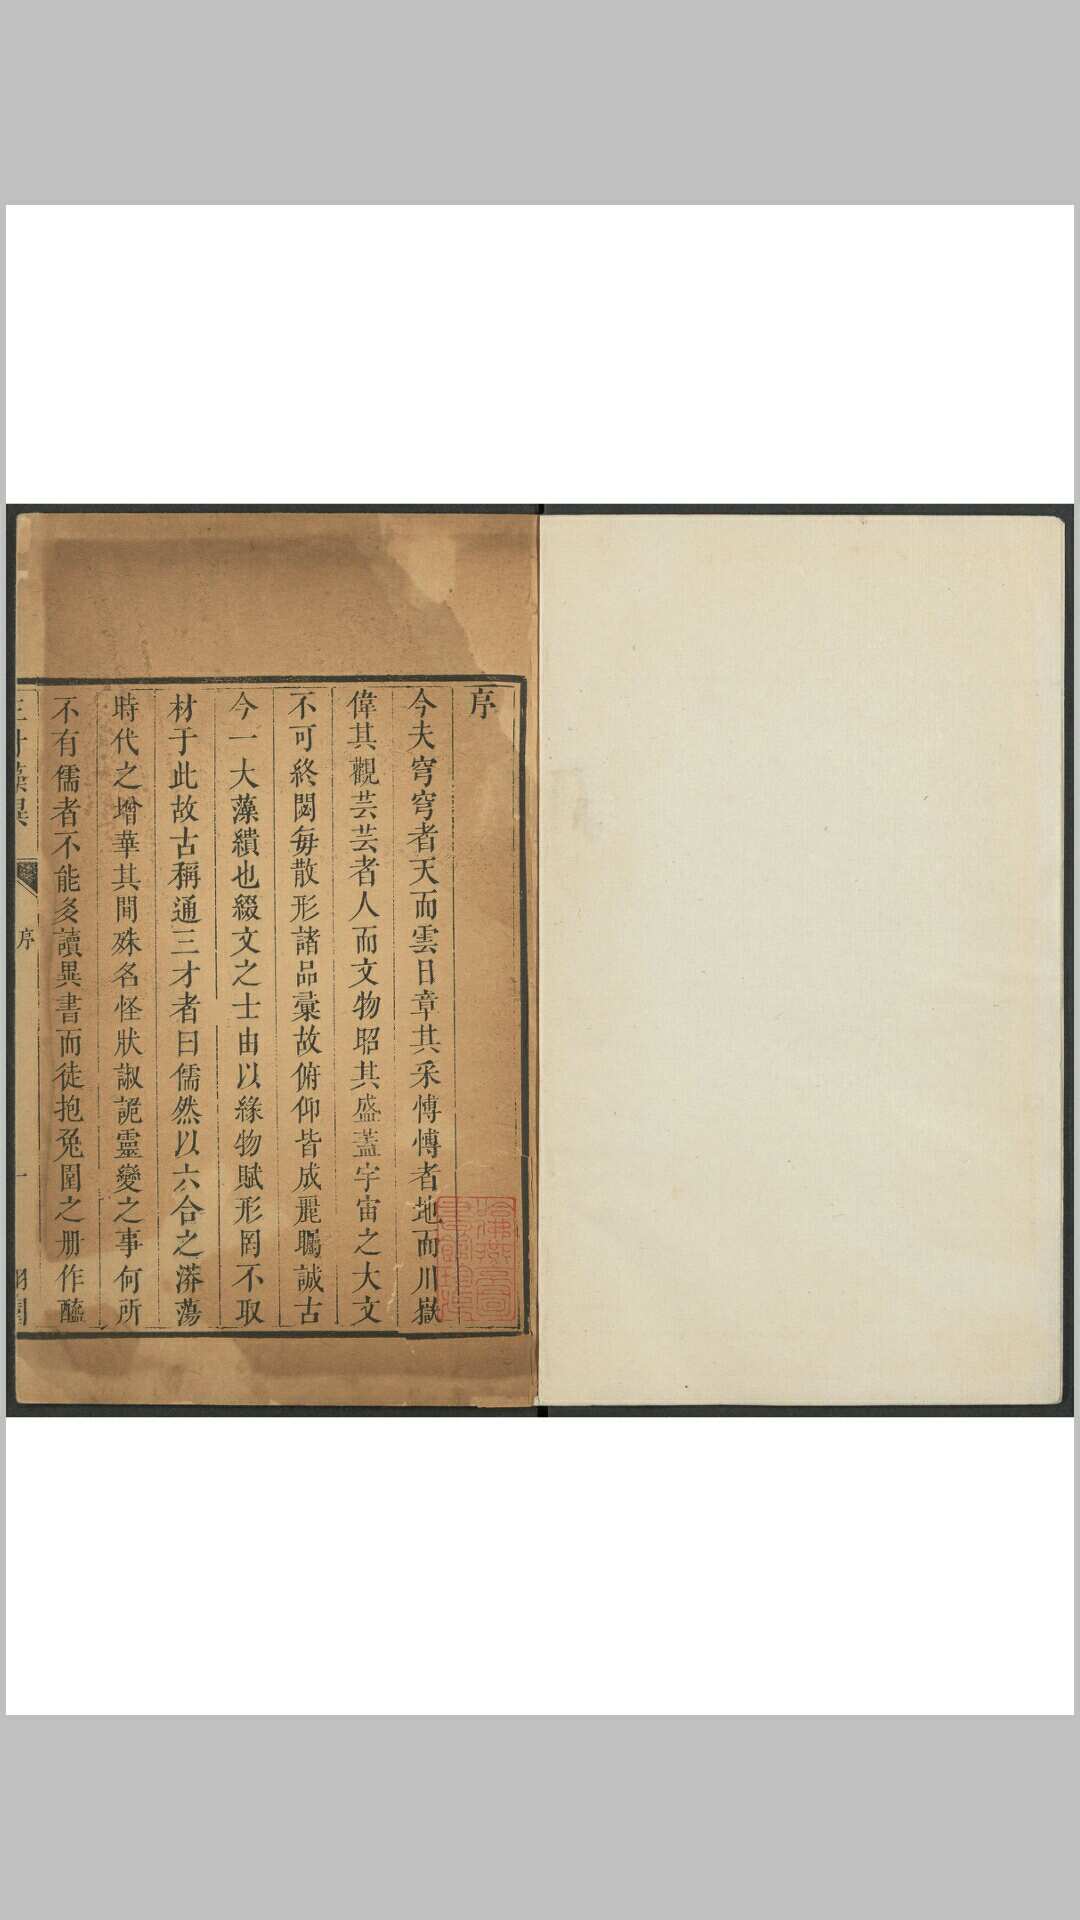 序
今夫穹穹者天而雲日章其采慱慱者地而川嶽
偉其觀芸芸者人而文物昭其盛蓋宇宙之大文
不可終閟每散形諸品彙故俯仰皆成麗矚誠古
今一大藻繢也綴文之士由以緣物賦形罔不取
材于此故古稱通三才者曰儒然以六合之漭蕩
時代之增華其間殊名怪狀諔詭靈變之事何所
不有儒者不能多讀異書而徒抱兔園之册作醯
三才藻異
序
一
哈佛燕京圖書館珍藏